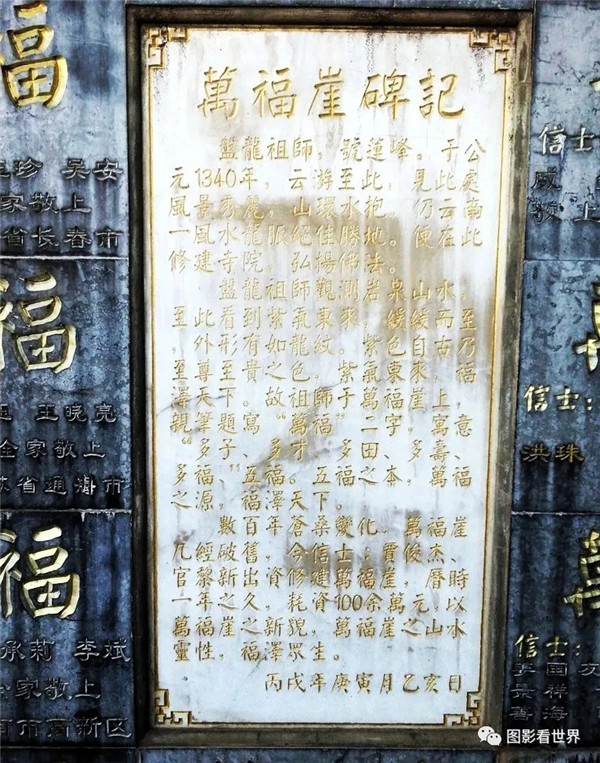 萬福崖碑記
盤龍祖師,號蓮峰。于公
元1340年,云游至此,見此處
風景秀麗,山環水抱。仍云南
一風水龍脈絕佳勝地。便在此
修建寺院,弘揚佛法。
盤龍祖師觀測岩泉山水,
至此看到紫氣東來。緩緩而至
,外形有如龍紋。紫色自古乃
至尊至貴之色。紫氣東來,福
澤天下。故師于萬福崖上,
親筆題寫“萬福”一字,寓意
“多子、多才、多田、多壽、
多福”、五福之本,萬福
之源,福澤天下。
數百年蒼桑變化,萬福崖
几經破舊,今信士:賈俊杰、
官黎新出資修建萬福崖,曆時
一年之久,耗資100余萬元,以
萬福崖之新貌,萬福崖之山水
靈性,福澤眾生。
丙戌年庚寅月乙亥日
福
珍 吴安
家敬上
省长春市
福
王晓亮
全家敬上
省通州市
福
承莉 李斌
家敬上
市高新区
信士
敬上
信士:
洪珠
萬
信士:
图影看世界